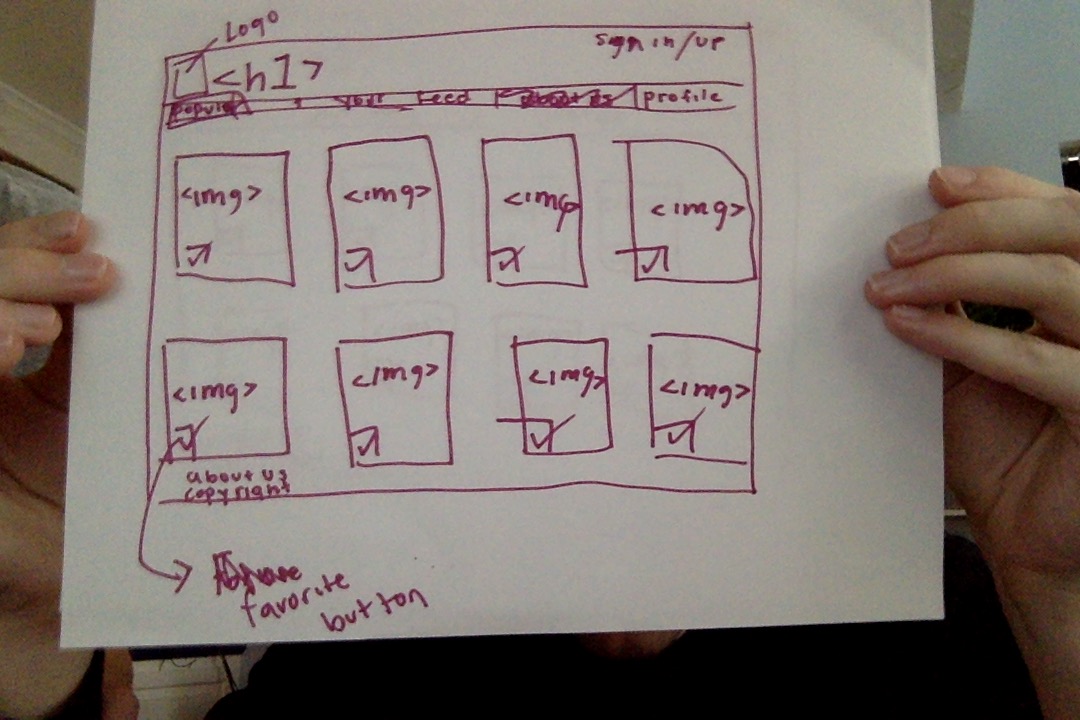 Logo
sign in/up
<h1>
popular your feed about us profile
<img> <img> <img> <img>
<img> <img> <img> <img>
about us
copyright
favorite
button